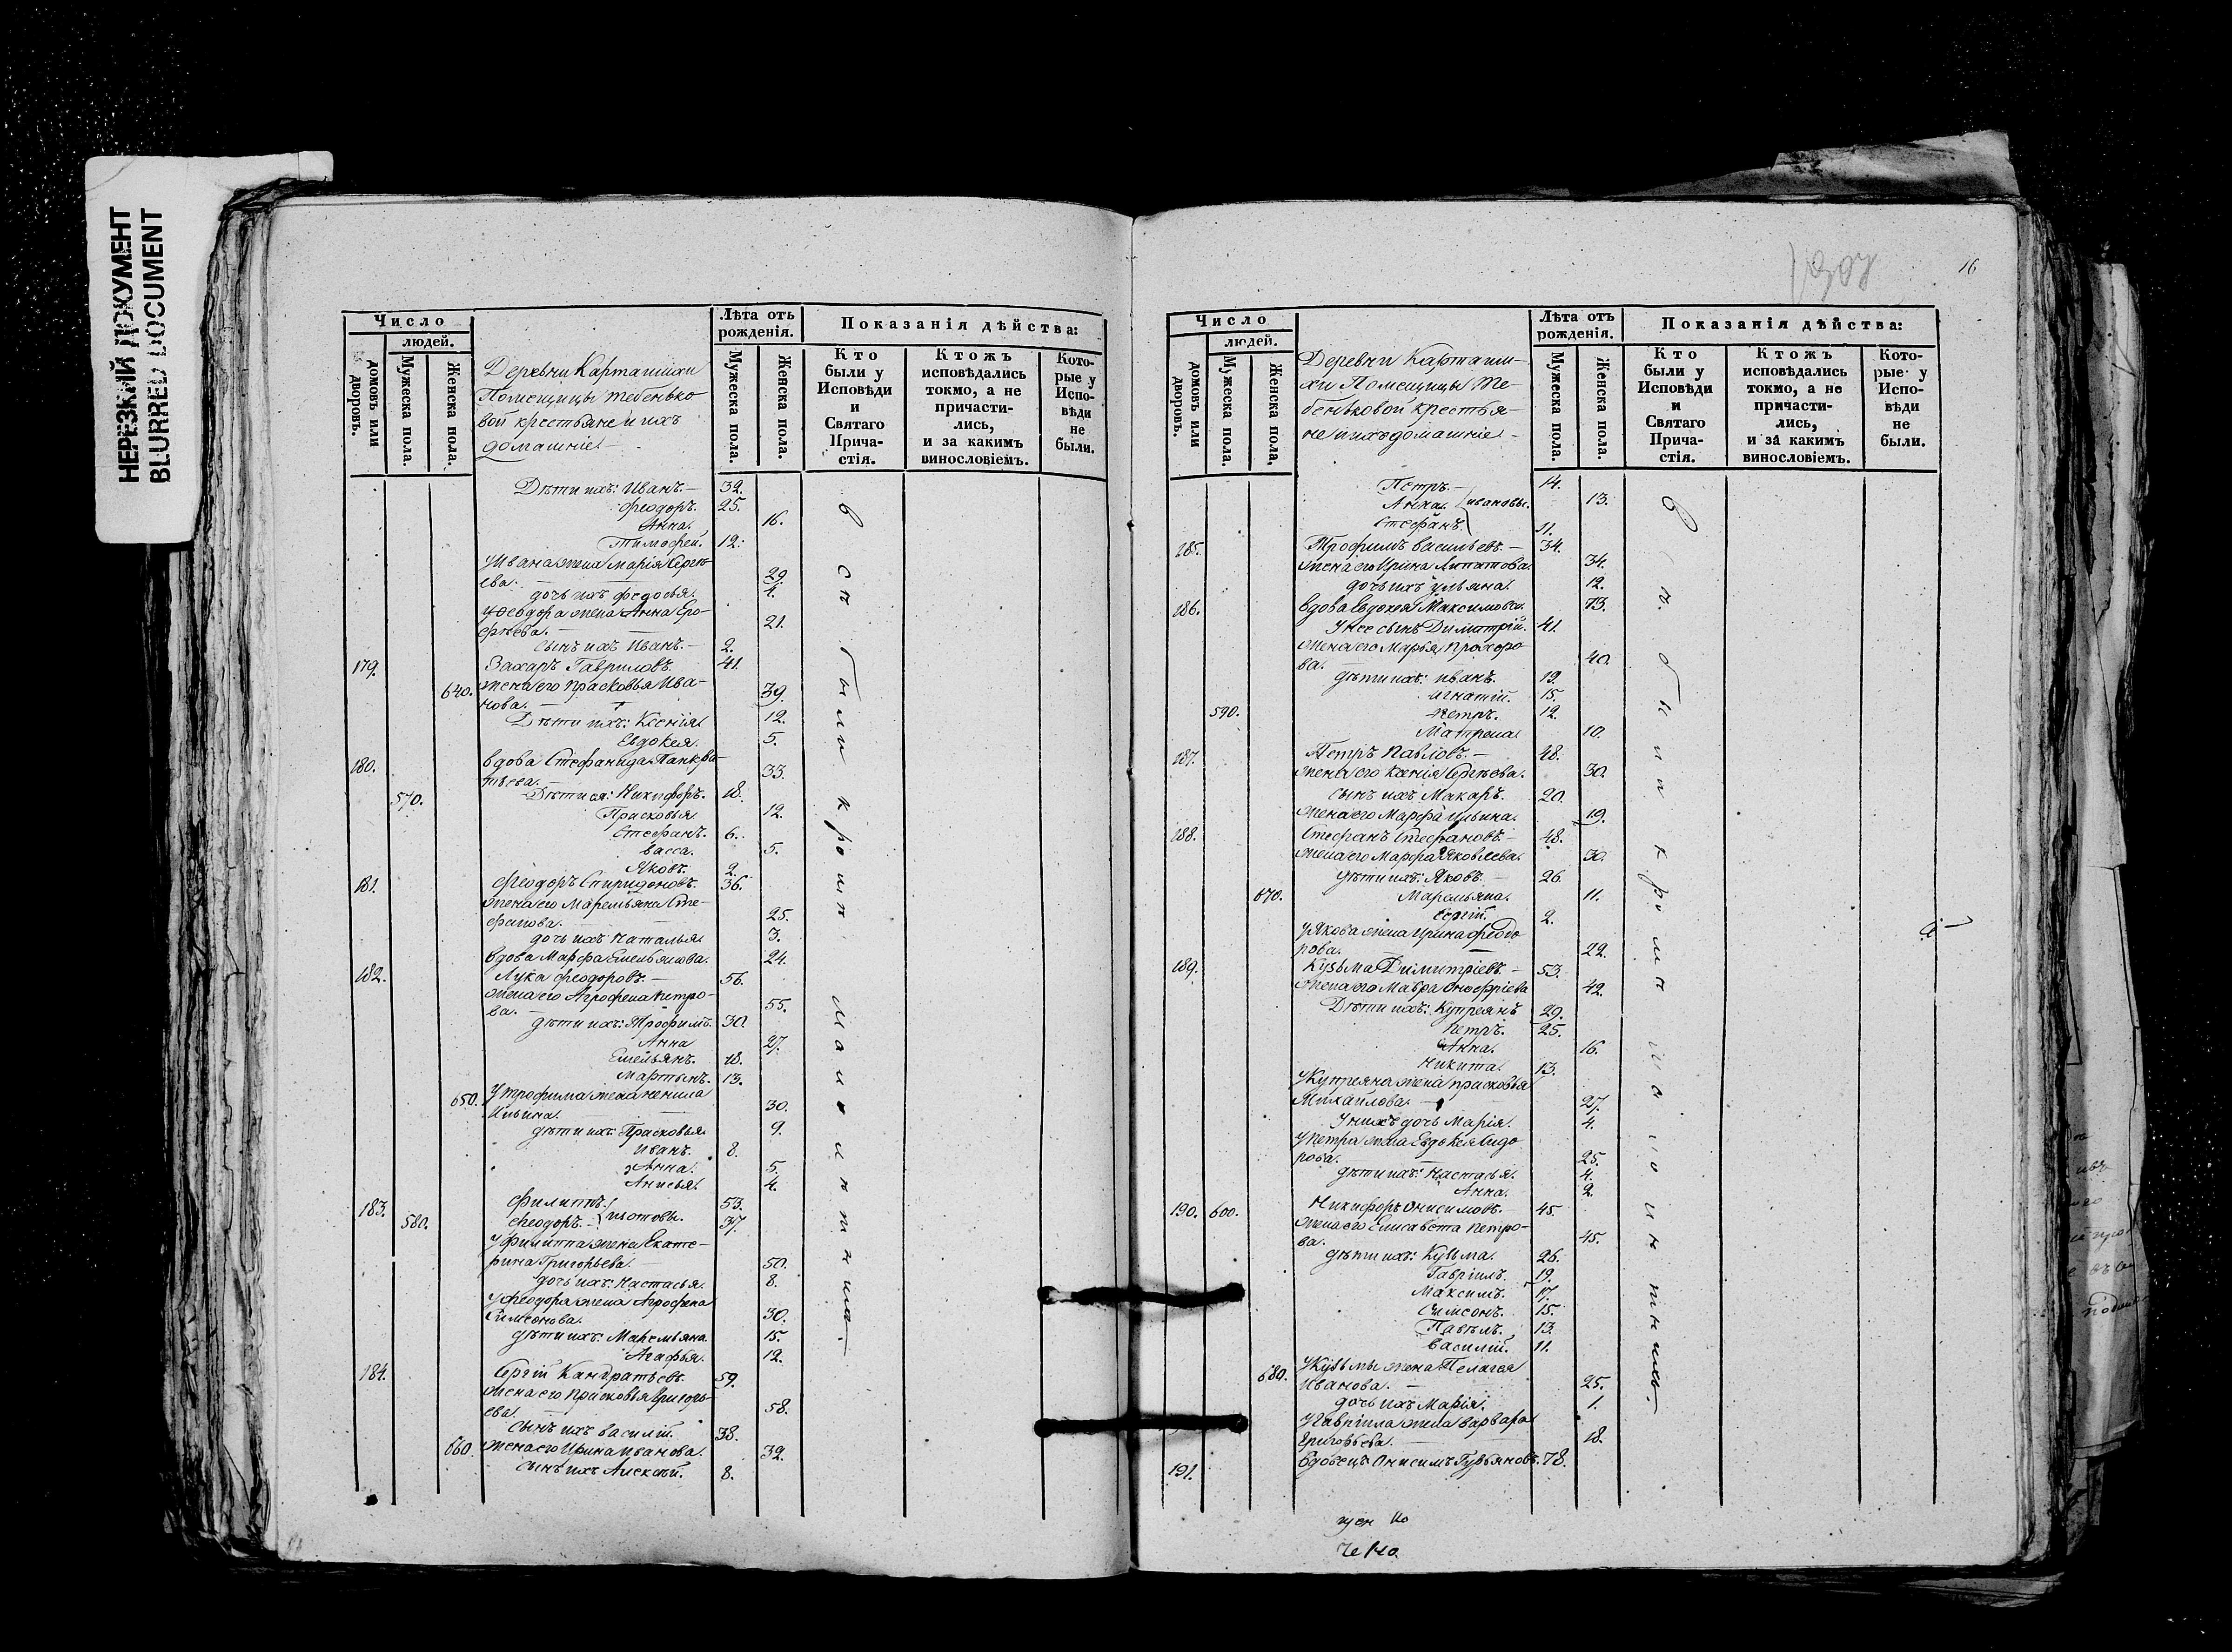 НЕРЕЗКИЙ ДОКУМЕНТ
BLURRED DOCUMENT
Число
людей.
домовъ или дворовъ.
Мужеска пола.
Женска пола.
Деревни Карташихи
Помещицы Тебенько-
вой крестьяне и ихъ
домашніе
Лѣта отъ
рожденія.
Мужеска пола.
Женска пола.
Показанія дѣйства:
Кто
были у
Исповѣди
и
Святаго
Прича-
стія.
Ктожъ
исповѣдались
токмо, а не
причасти-
лись,
и за какимъ
винословіемъ.
Кото-
рые у
Испо-
вѣди
не
были.
Дѣти ихъ: Иванъ. — 32.
Феодоръ. 25.
Анна. 16.
Тимофей. 12.
У Ивана жена Марія Сергѣ-
ева. — 29.
дочь ихъ Федосья. 1.
У Феодора жена Анна Еро-
фѣева. — 21.
Сынъ ихъ Иванъ. — 2.
179. Захаръ Гавриловъ. 41.
640. жена его Прасковья Ива-
нова. — 39.
Дѣти ихъ: Ксенія 12.
Евдокея. 5.
180. Вдова Стефанида Панкра-
тьева. — 33.
570. Дѣти ея: Никифоръ. 18.
Прасковья 12.
Стефанъ. 6.
Васса. 5.
Яковъ. 2.
181. Феодоръ Спиридоновъ. 36.
жена его Маремьяна Сте-
фанова. 25.
дочь ихъ Наталья 3.
Вдова Марфа Емельянова. 24.
182. Лука Феодоровъ. — 56.
жена его Агрофена Петро-
ва. — 55.
дѣти ихъ: Трофимъ. 30.
Анна 27.
Емельянъ. 18.
Мартынъ. 13.
650. У Трофима жена Ненила
Ильина. 30.
дѣти ихъ: Прасковья 9.
Иванъ. 8.
Анна. 5.
Анисья. 4.
183. Филиппъ. 53.
580. Феодоръ. — Изотовы. 37.
У Филиппа жена Екате-
рина Григорьева. — 50.
дочь ихъ: Настасья. 8.
У Феодора жена Агрофена
Симеонова. 30.
дѣти ихъ: Маремьяна 15.
Агафья. 12.
184. Сергій Кандратьевъ. 59.
жена его Прасковья Григорь-
ева. 58.
Сынъ ихъ Василій. 38.
660. жена его Ирина Иванова. 32.
Сынъ ихъ Алексѣй. 8.
всѣ были кромѣ малолѣтнихъ.
16
Число
людей.
домовъ или дворовъ.
Мужеска пола.
Женска пола.
Деревни Карташи-
хи Помещицы Те-
беньковой крестья-
не и ихъ домашніе —
Лѣта отъ
рожденія.
Мужеска пола.
Женска пола.
Показанія дѣйства:
Кто
были у
Исповѣди
и
Святаго
Прича-
стія.
Ктожъ
исповѣдались
токмо, а не
причасти-
лись,
и за какимъ
винословіемъ.
Кото-
рые у
Испо-
вѣди
не
были.
Петръ. — 14.
Анна. Ивановы. 13.
Стефанъ. 11.
185. Трофимъ Васильевъ. — 34.
жена его Ирина Липатова. 34.
дочь ихъ Ульяна. 12.
186. Вдова Евдокея Максимова. 73.
У нее сынъ Димитрій. 41.
жена его Марья Прохоро-
ва. — 40.
дѣти ихъ: Иванъ. 19.
Игнатій. 15.
590. Петръ. 12.
Матрена 10.
187. Петръ Павловъ. — 48.
жена его Ксенія Сергѣева. 30.
Сынъ ихъ Макаръ. 20.
жена его Марфа Ильина. 19.
188. Стефанъ Стефановъ. — 48.
жена его Марфа Яковлева. 30.
дѣти ихъ: Яковъ. — 26.
670. Маремьяна. 11.
Сергій. 2.
У Якова жена Ирина Феодо-
рова. 22.
189. Кузьма Димитріевъ. — 53.
жена его Мавра Онофріева 42.
Дѣти ихъ: Купреянъ 29.
Петръ. 25.
Анна. 16.
Никита. 13.
У Купреяна жена Прасковья
Михайлова. — 27.
У нихъ дочь Марія. 4.
У Петра жена Евдокея Сидо-
рова. 25.
дѣти ихъ: Настасья. 4.
Анна. 2.
190. 600. Никифоръ Онисимовъ. — 45.
жена его Елисавета Петро-
ва. 45.
дѣти ихъ: Кузьма. 26.
Гавріилъ. 19.
Максимъ. 17.
Симеонъ. 15.
Павелъ. 13.
Василій. 11.
680. У Кузьмы жена Пелагея
Иванова. — 25.
дочь ихъ Марія. 1.
У Гавріила жена Варвара
Григорьева. — 18.
191. Вдовецъ Онисимъ Гурьяновъ. 78.
всѣ были кромѣ малолѣтнихъ.